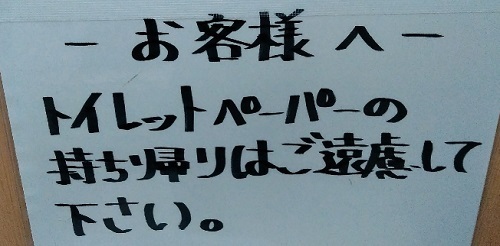 －お客様へ－
トイレットペーパーの
持ち帰りはご遠慮して
下さい。